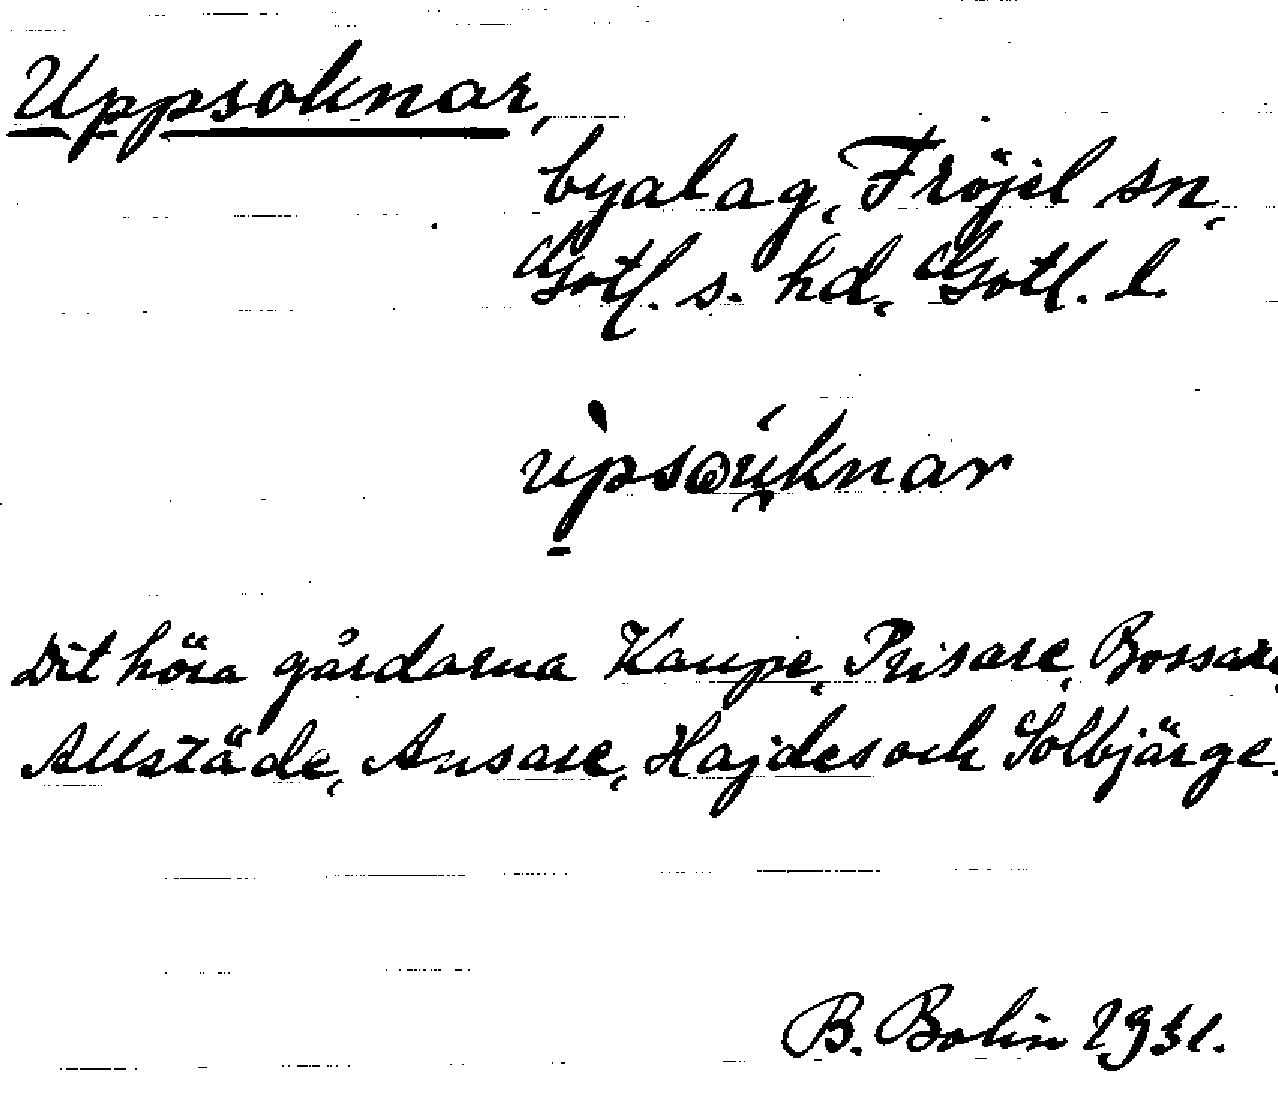 Uppsoknar,
byalag, Fröjel sn,
Gotl. s. hd, Gotl. l.
ùpsωu̯knar
Dit höra gårdarna Kaupe, Prisare, Bossare,
Allstäde, Ansare, Hajdes och Solbjärge.
B. Bolin 1931.